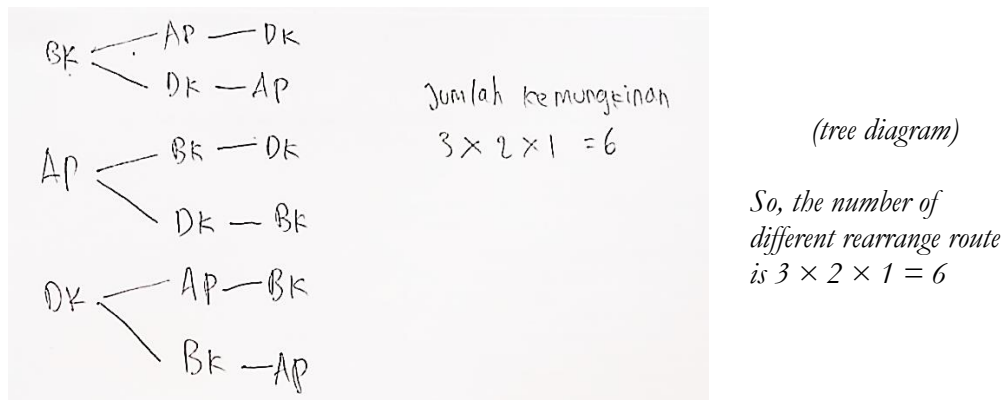 BK — AP — DK
DK — AP
AP — BK — DK
DK — BK
DK — AP — BK
BK — AP
Jumlah kemungkinan
3 × 2 × 1 = 6
(tree diagram)
So, the number of
different rearrange route
is 3 × 2 × 1 = 6